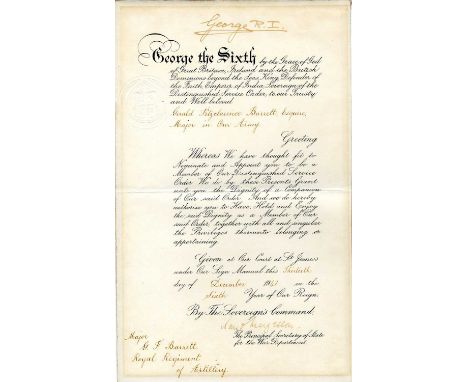 George R.I.
George the Sixth by the Grace of God
of Great Britain, Ireland and the British
Dominions beyond the Seas King, Defender of
the Faith, Emperor of India, Sovereign of the
Distinguished Service Order, to our Trusty
and Well beloved
Gerald Fitzclarence Barrett Esquire,
Major in Our Army
Greeting
Whereas We have thought fit to
Nominate and Appoint you to be a
Member of Our Distinguished Service
Order We do by these Presents Grant
unto you the Dignity of a Companion
of Our said Order And we do hereby
authorise you to Have, Hold and Enjoy
the said Dignity as a Member of Our
said Order, together with all and singular
the Privileges thereunto belonging or
appertaining.
Given at Our Court at St. James's
under Our Sign Manual this
day of December 19 in the
Sixth Year of Our Reign.
By The Sovereign's Command.
The Principal Secretary of State
for the War Department.
Major
G. F. Barrett
Royal Regiment
of Artillery.